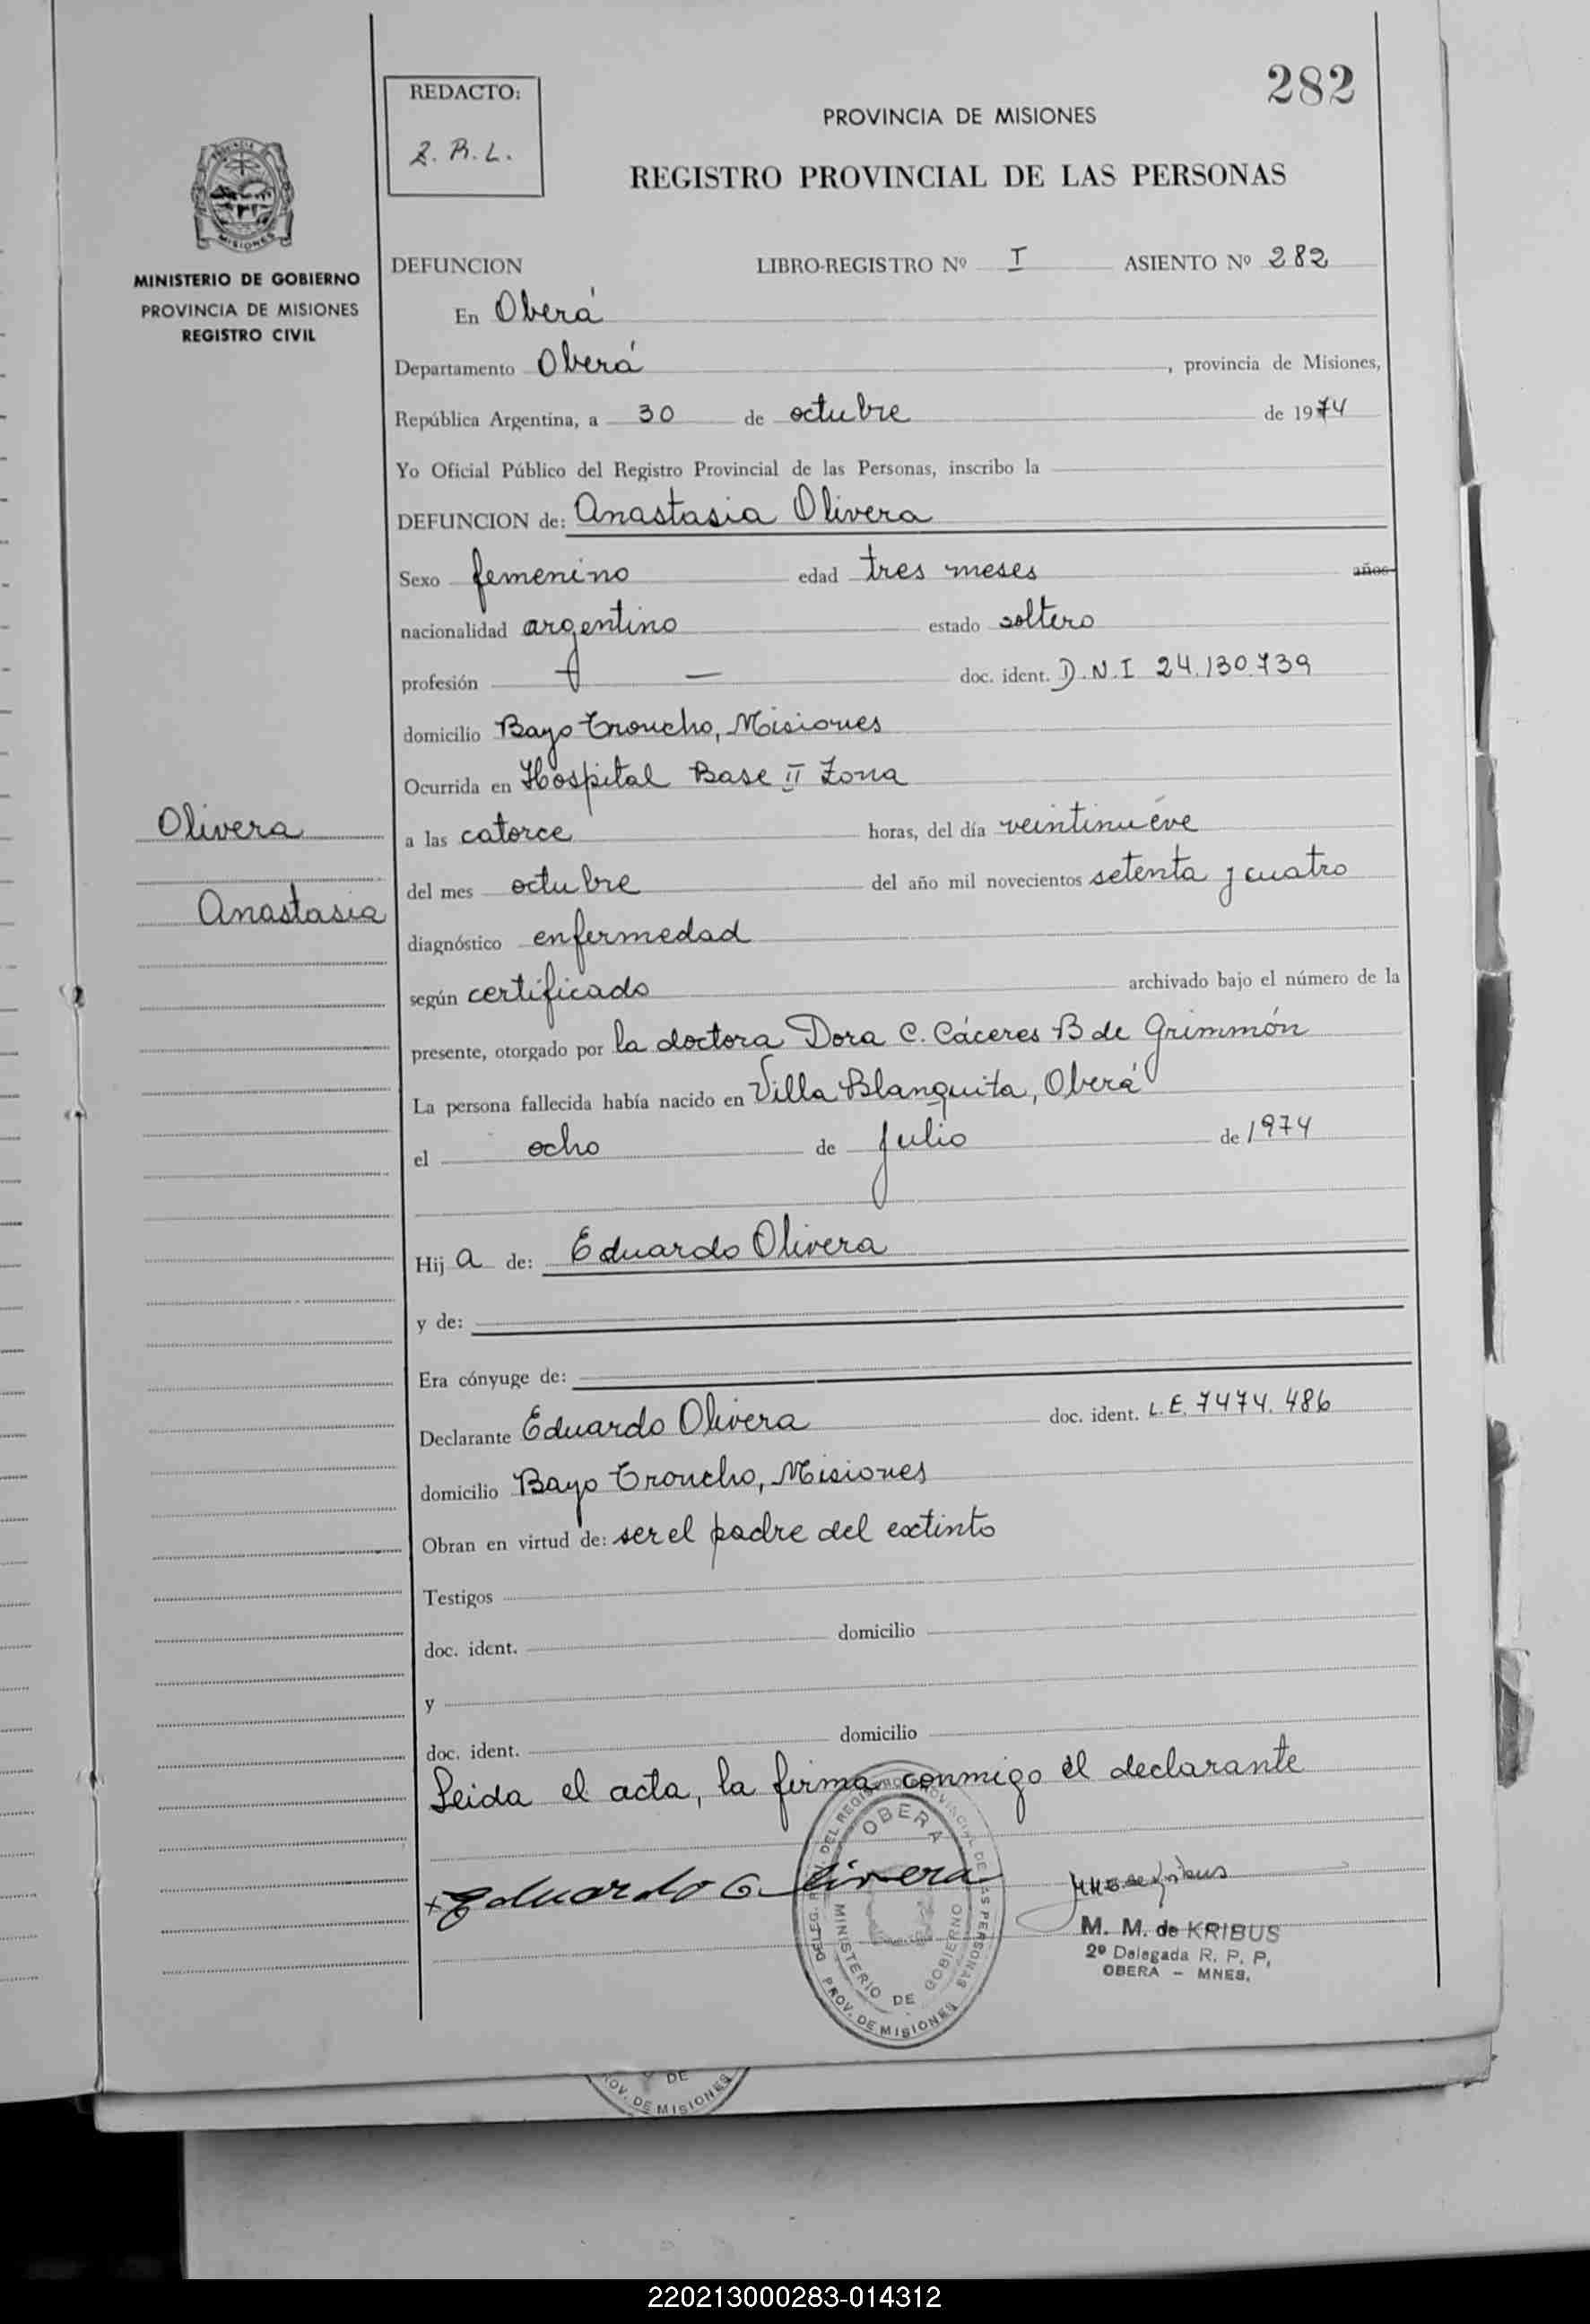 282
REDACTO:
Z. R. L.
PROVINCIA DE MISIONES
REGISTRO PROVINCIAL DE LAS PERSONAS
MISIONES
MINISTERIO DE GOBIERNO
PROVINCIA DE MISIONES
REGISTRO CIVIL
DEFUNCION LIBRO-REGISTRO Nº I ASIENTO Nº 282
En Oberá
Departamento Oberá, provincia de Misiones,
República Argentina, a 30 de octubre de 1974
Yo Oficial Público del Registro Provincial de las Personas, inscribo la
DEFUNCION de: Anastasia Olivera
Sexo femenino edad tres meses años
nacionalidad argentino estado soltero
profesión — doc. ident. D.N.I 24.130.739
domicilio Bayo Troncho, Misiones
Ocurrida en Hospital Base II Zona
Olivera
a las catorce horas, del día veintinueve
del mes octubre del año mil novecientos setenta y cuatro
Anastasia
diagnóstico enfermedad
según certificado archivado bajo el número de la
presente, otorgado por la doctora Dora C. Cáceres B de Grimmón
La persona fallecida había nacido en Villa Blanquita, Oberá
el ocho de julio de 1974
Hij a de: Eduardo Olivera
y de:
Era cónyuge de:
Declarante Eduardo Olivera doc. ident. L.E. 7474.486
domicilio Bayo Troncho, Misiones
Obran en virtud de: ser el padre del extinto
Testigos
doc. ident. domicilio
y
doc. ident. domicilio
Leida el acta, la firma conmigo el declarante
Eduardo Olivera
OBERA
MINISTERIO DE GOBIERNO
PROV. DE MISIONES
M. M. de KRIBUS
2º Delegada R. P. P.
OBERA - MNES.
DE
OV. DE MISIONES
220213000283-014312